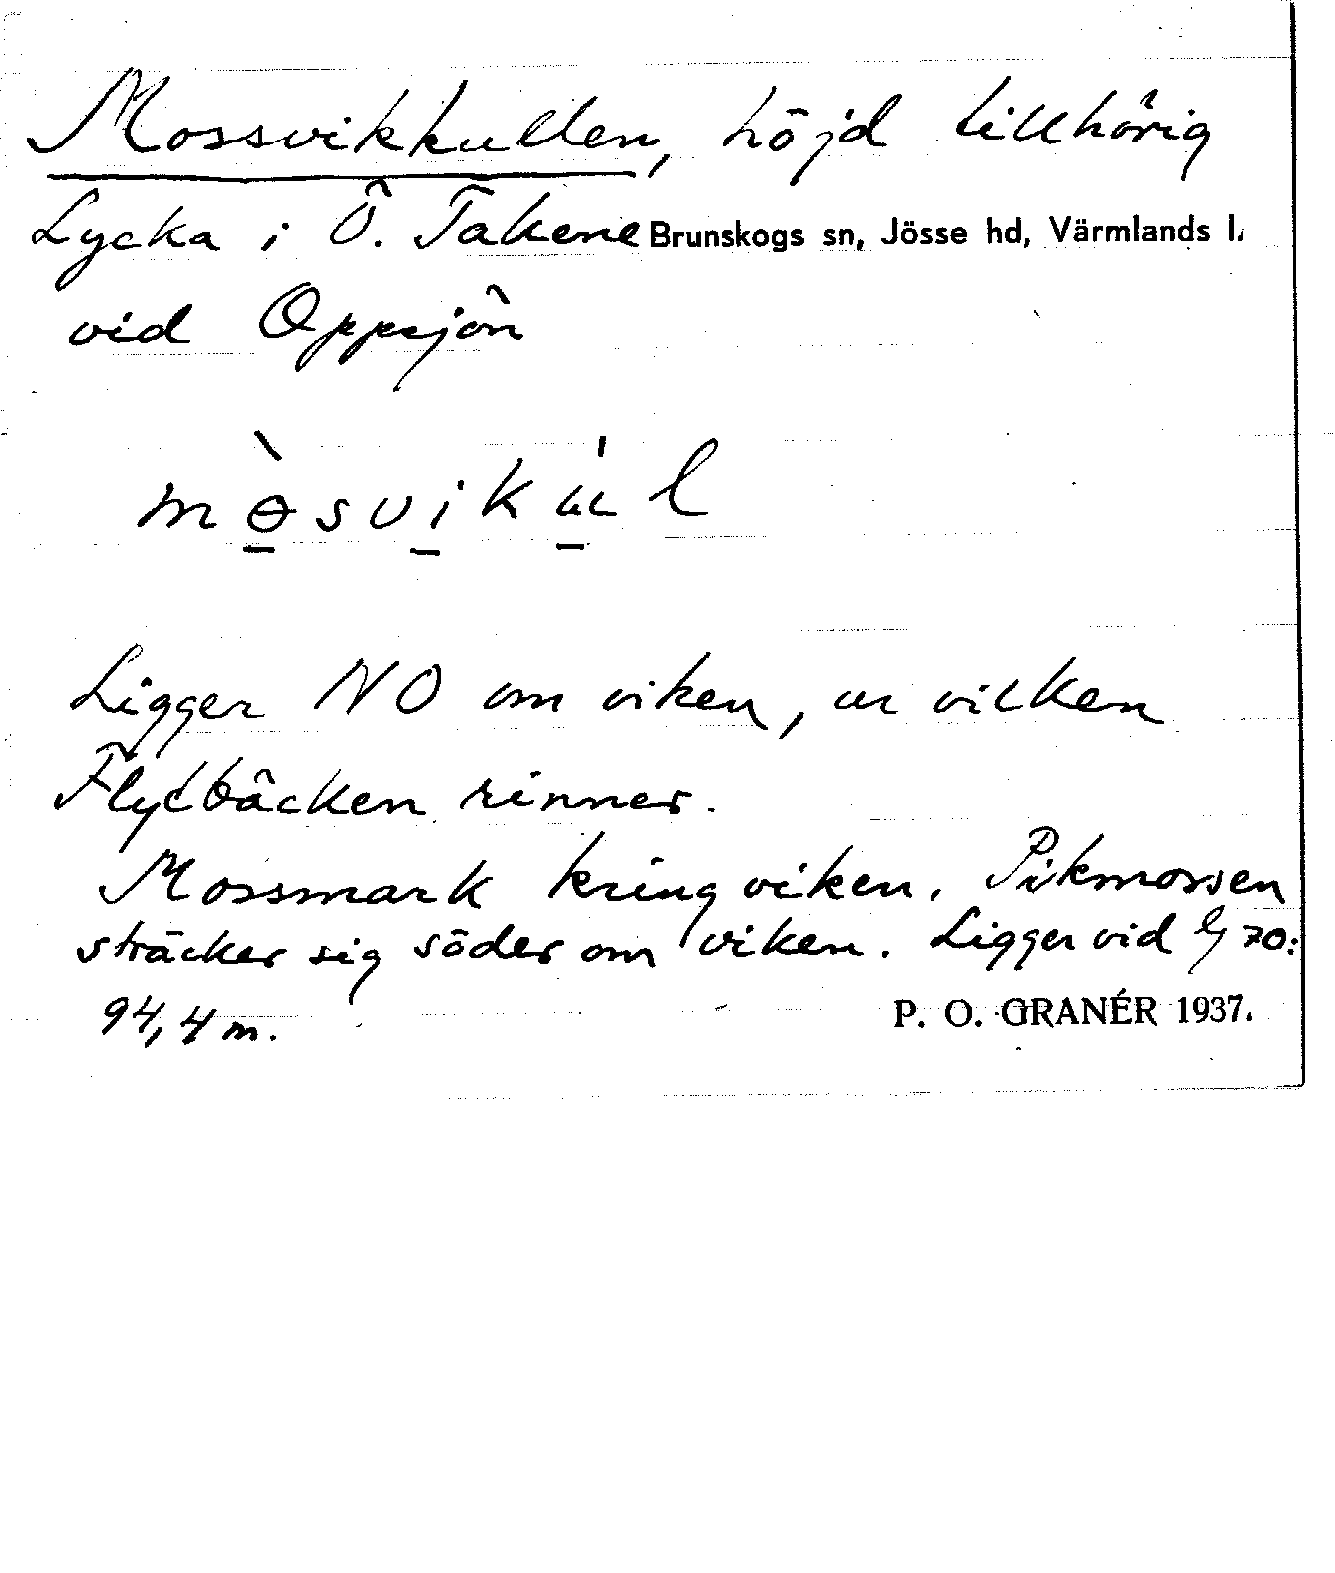 Mossvikkullen, höjd tillhörig
Lycka i Ö. Takene Brunskogs sn, Jösse hd, Värmlands l.
vid Oppsjön
mɵ̀svikúl
Ligger NO om viken, ur vilken
Flytbäcken rinner.
Mossmark kring viken. Pikmossen
sträcker sig söder om viken. Ligger vid 70:
94,4 m.
P. O. GRANÉR 1937.